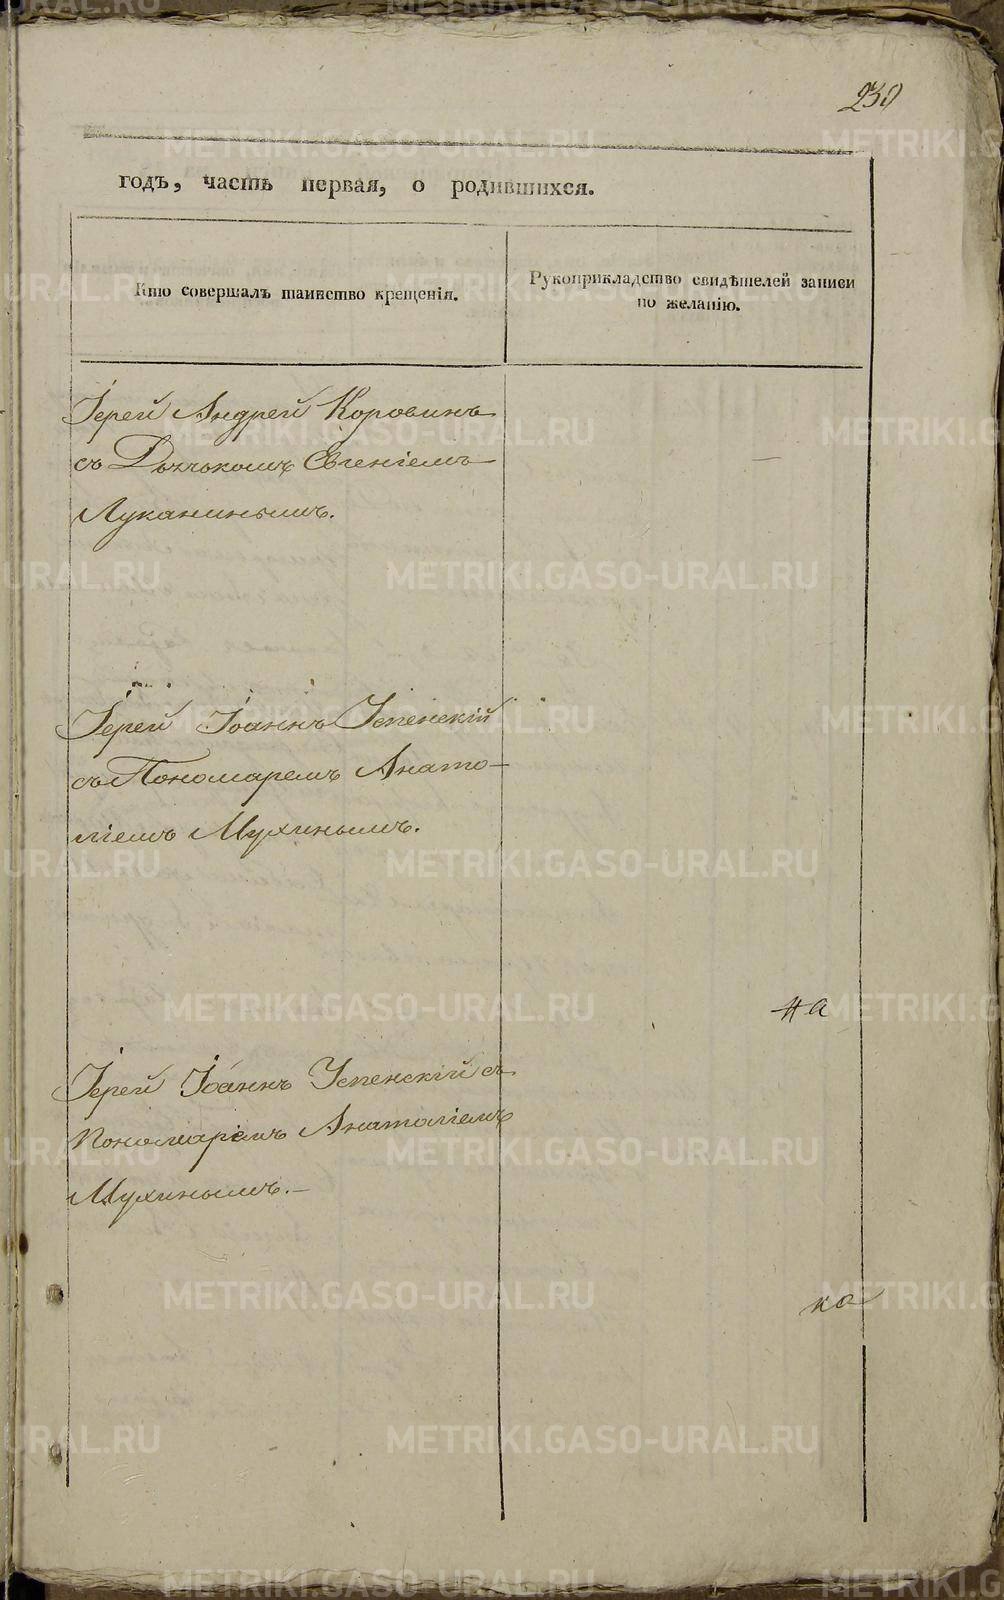 230
годъ, часть первая, о родившихся.
Кто совершалъ таинство крещенія.
Рукоприкладство свидѣтелей записи
по желанію.
Іерей Андрей Коровинъ
съ Дьячкомъ Евгеніемъ
Луканинымъ.
Іерей Іоаннъ Успенскій
съ Пономаремъ Анато-
ліемъ Мухинымъ.
на
Іерей Іоаннъ Успенскій съ
Пономаремъ Анатоліемъ
Мухинымъ.-
ка
METRIKI.GASO-URAL.RU